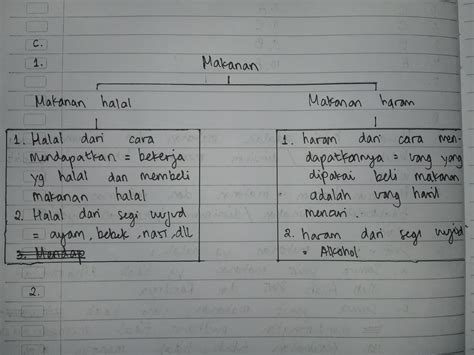 C.
1.
Makanan
Makanan halal
Makanan haram
1. Halal dari cara
mendapatkan = bekerja
yg halal dan membeli
makanan halal
2. Halal dari segi wujud
= ayam, bebek, nasi, dll
3. Mendap
1. haram dari cara men-
dapatkannya = uang yang
dipakai beli makanan
adalah uang hasil
mencuri.
2. haram dari segi wujud
= Alkohol
2.